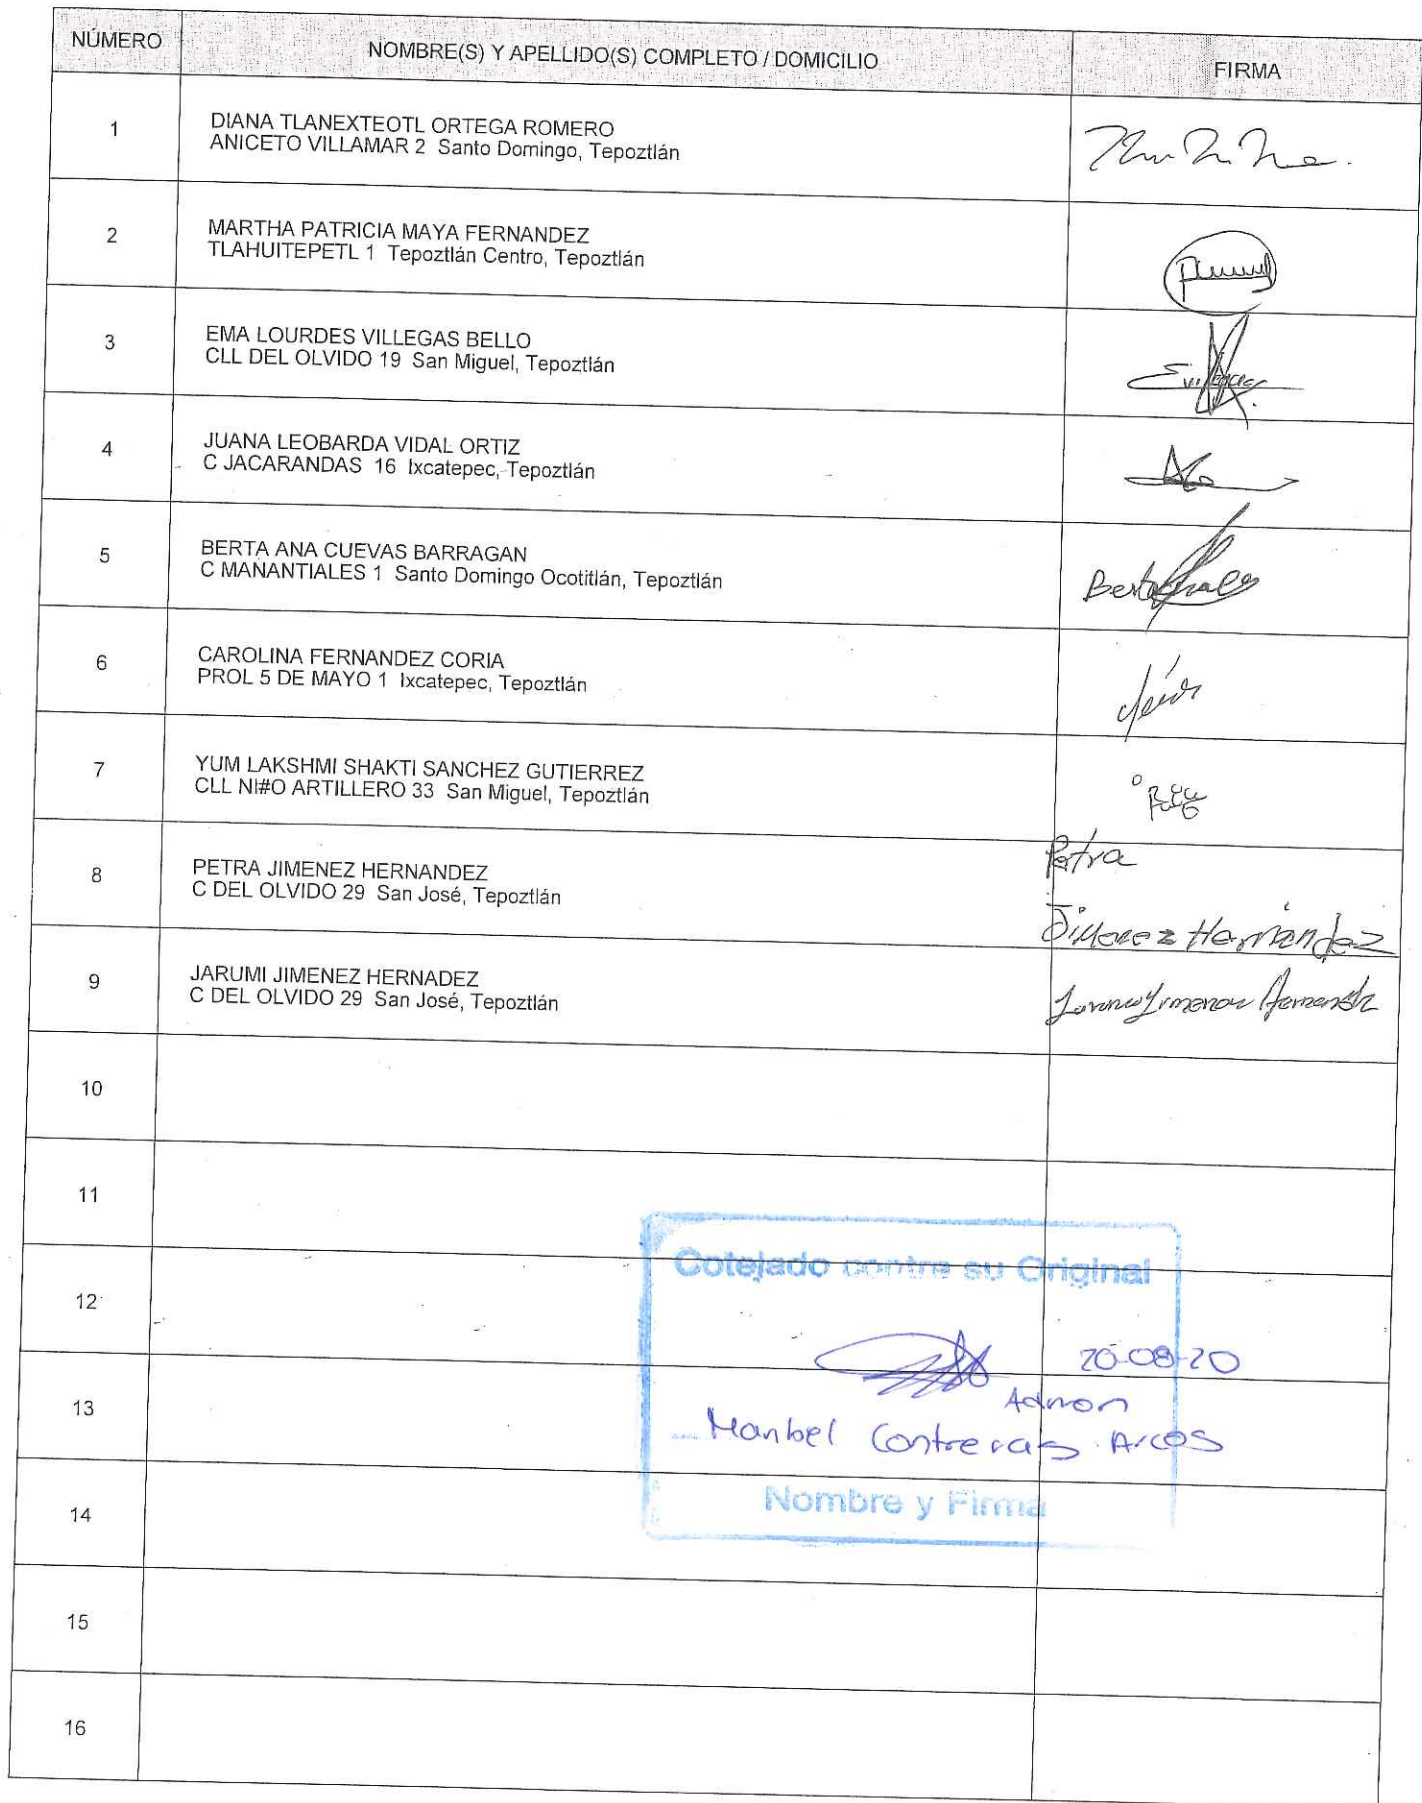 NÚMERO NOMBRE(S) Y APELLIDO(S) COMPLETO / DOMICILIO FIRMA
1 DIANA TLANEXTEOTL ORTEGA ROMERO
ANICETO VILLAMAR 2 Santo Domingo, Tepoztlán
2 MARTHA PATRICIA MAYA FERNANDEZ
TLAHUITEPETL 1 Tepoztlán Centro, Tepoztlán
3 EMA LOURDES VILLEGAS BELLO
CLL DEL OLVIDO 19 San Miguel, Tepoztlán
4 JUANA LEOBARDA VIDAL ORTIZ
C JACARANDAS 16 Ixcatepec, Tepoztlán
5 BERTA ANA CUEVAS BARRAGAN
C MAÑANTIALES 1 Santo Domingo Ocotitlán, Tepoztlán
Berta
6 CAROLINA FERNANDEZ CORIA
PROL 5 DE MAYO 1 Ixcatepec, Tepoztlán
7 YUM LAKSHMI SHAKTI SANCHEZ GUTIERREZ
CLL NI#O ARTILLERO 33 San Miguel, Tepoztlán
8 PETRA JIMENEZ HERNANDEZ
C DEL OLVIDO 29 San José, Tepoztlán
Petra
Jimenez Hernández
9 JARUMI JIMENEZ HERNADEZ
C DEL OLVIDO 29 San José, Tepoztlán
10
11
Cotejado contra su Original
12
20-08-20
13
Contreras Arcos
Nombre y Firma
14
15
16